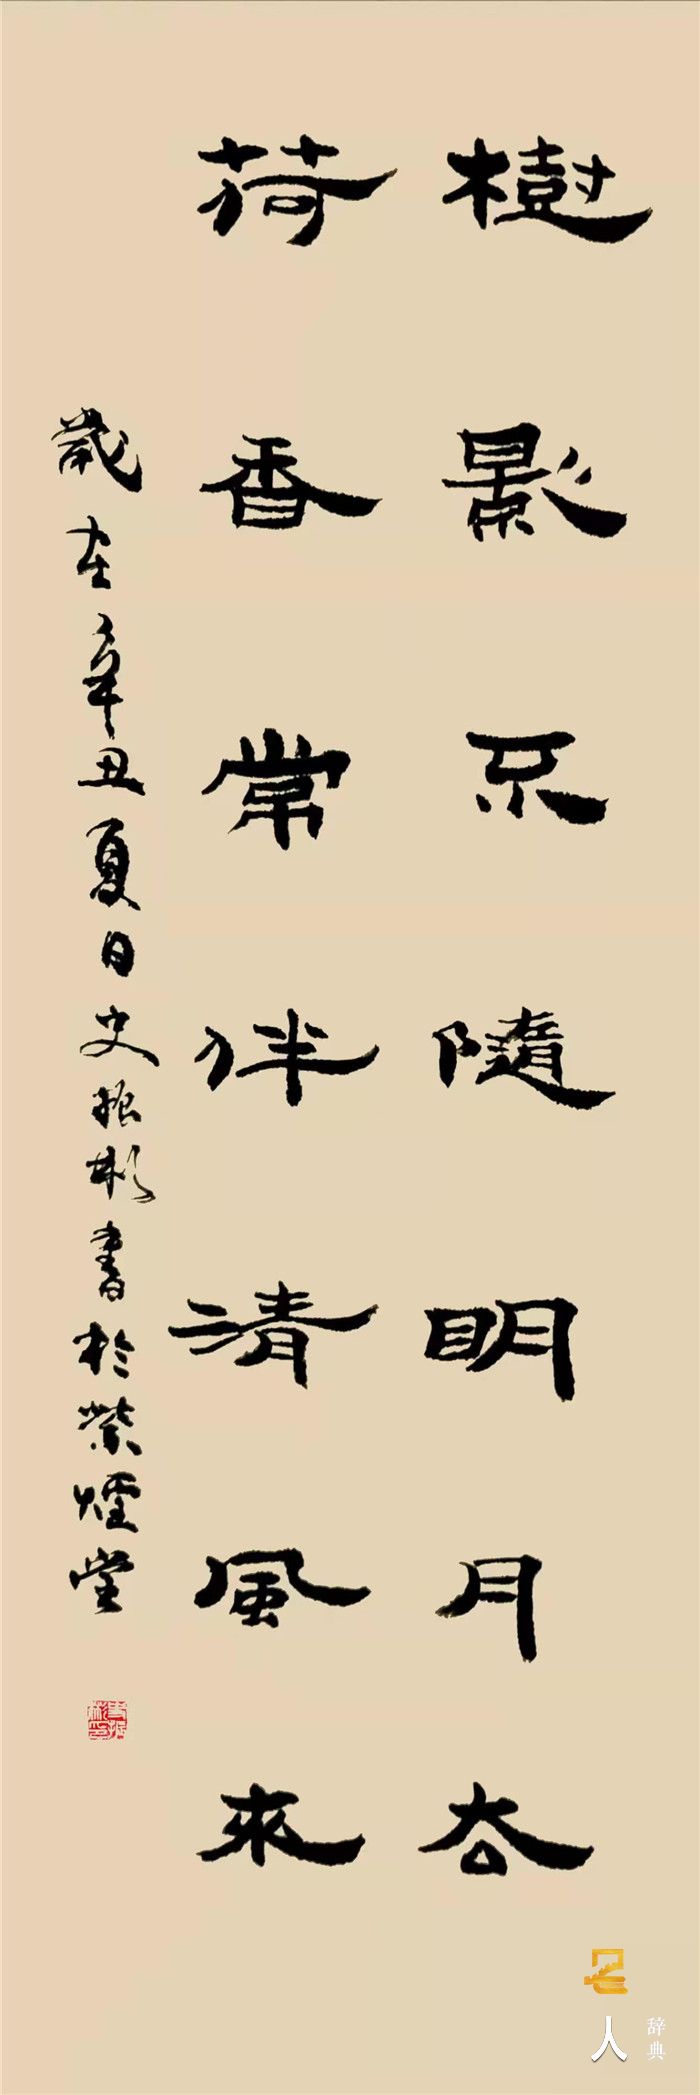 樹影不隨明月去
荷香常伴清風來
歲在辛丑夏日史振彬書於紫煙堂
史振彬印
名人
辞典